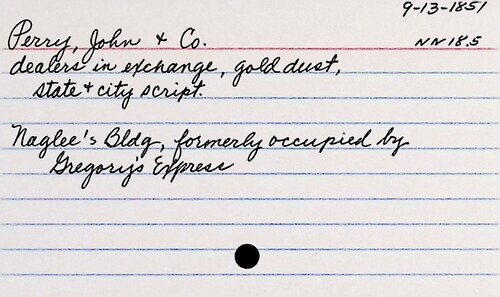 9-13-1851
Perry, John & Co. NN18.5
dealers in exchange, gold dust,
state & city script.
Naglee's Bldg, formerly occupied by
Gregory's Express